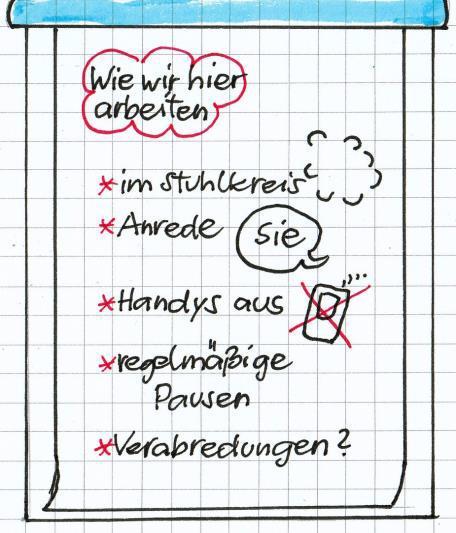 Wie wir hier
arbeiten
* im Stuhlkreis
* Anrede Sie
* Handys aus
* regelmäßige
Pausen
* Verabredungen?